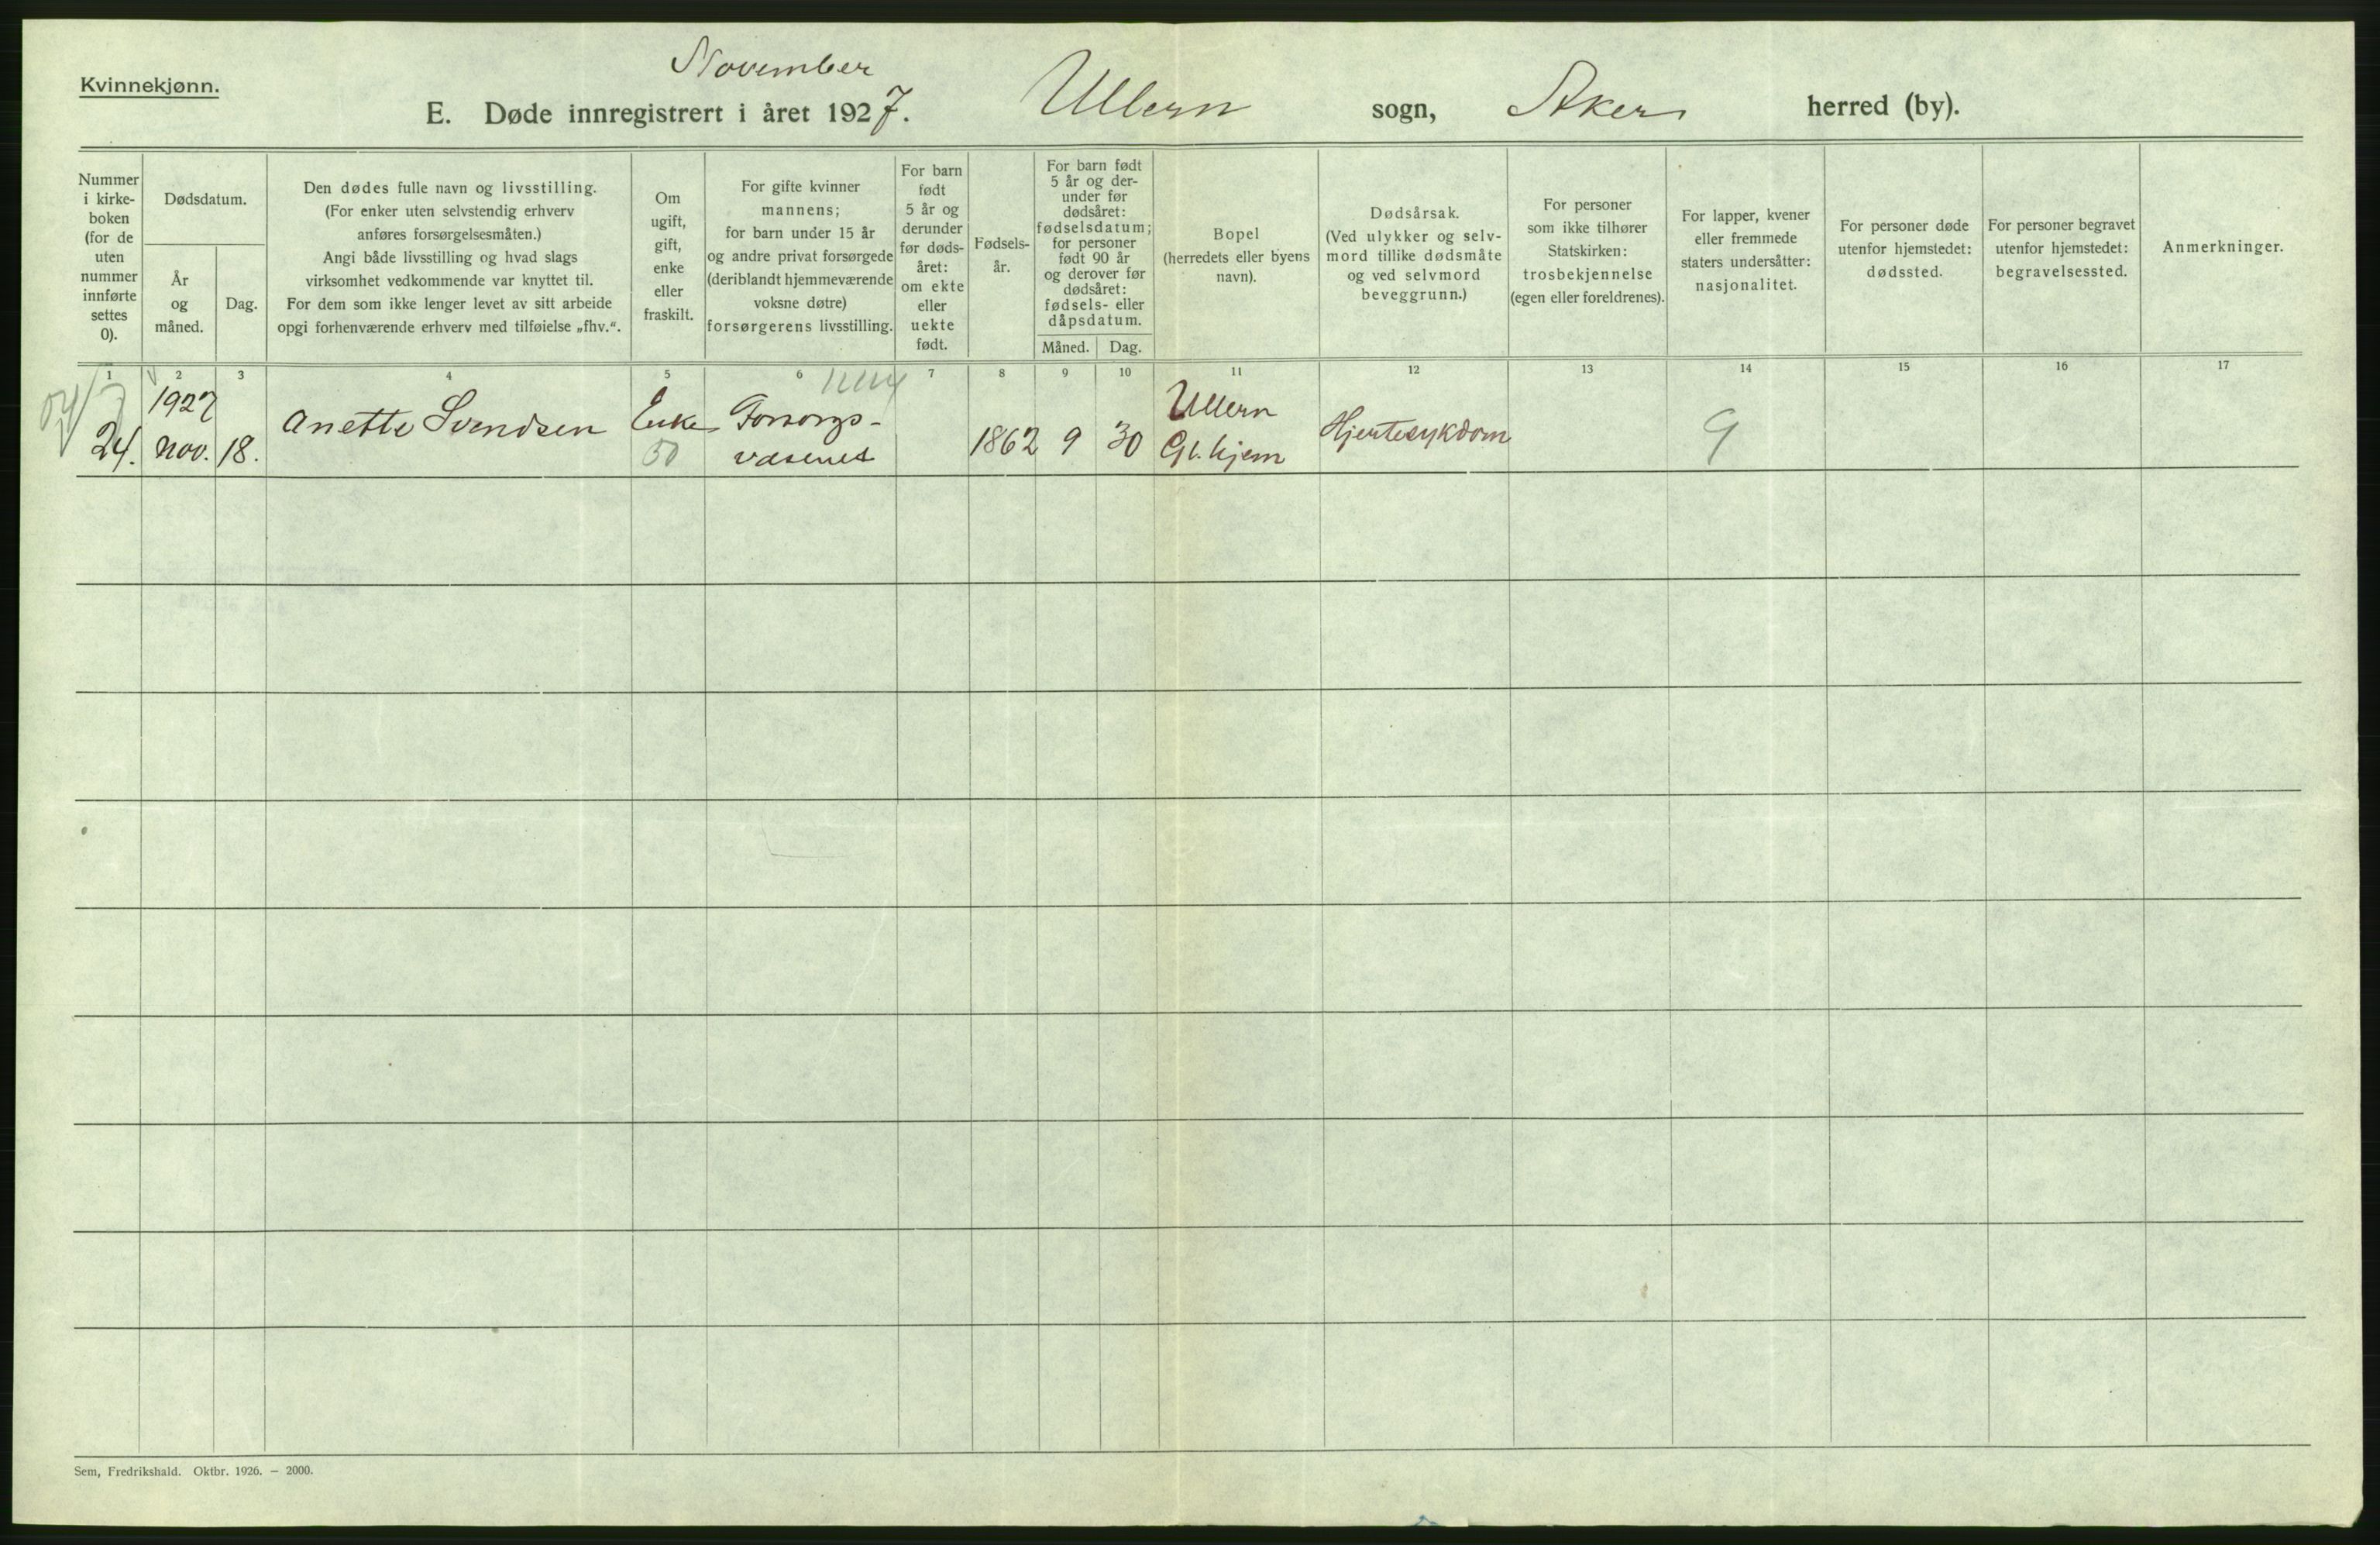 Kvinnekjønn.
November
E. Døde innregistrert i året 1927. Ullern sogn, Aker herred (by).
Nummer
i kirke-
boken
(for de
uten
nummer
innførte
settes
0).
Dødsdatum.
År
og
måned.
Dag.
Den dødes fulle navn og livsstilling.
(For enker uten selvstendig erhverv
anføres forsørgelsesmåten.)
Angi både livsstilling og hvad slags
virksomhet vedkommende var knyttet til.
For dem som ikke lenger levet av sitt arbeide
opgi forhenværende erhverv med tilføielse „fhv.“.
Om
ugift,
gift,
enke
eller
fraskilt.
For gifte kvinner
mannens;
for barn under 15 år
og andre privat forsørgede
(deriblandt hjemmeværende
voksne døtre)
forsørgerens livsstilling.
For barn
født
5 år og
derunder
før døds-
året:
om ekte
eller
uekte
født.
Fødsels-
år.
For barn født
5 år og der-
under før
dødsåret:
fødselsdatum;
for personer
født 90 år
og derover før
dødsåret:
fødsels- eller
dåpsdatum.
Måned. Dag.
Bopel
(herredets eller byens
navn).
Dødsårsak.
(Ved ulykker og selv-
mord tillike dødsmåte
og ved selvmord
beveggrunn.)
For personer
som ikke tilhører
Statskirken:
trosbekjennelse
(egen eller foreldrenes).
For lapper, kvener
eller fremmede
staters undersåtter:
nasjonalitet.
For personer døde
utenfor hjemstedet:
dødssted.
For personer begravet
utenfor hjemstedet:
begravelsessted.
Anmerkninger.
1 2 3 4 5 6 7 8 9 10 11 12 13 14 15 16 17
1927 Ullern
Anette Svendsen Enke Forsorgs- Hjertesykdom
24. nov. 18. 50 væsenet 1862 9 30 Gl. hjem 9
Sem, Fredrikshald. Oktbr. 1926. — 2000.